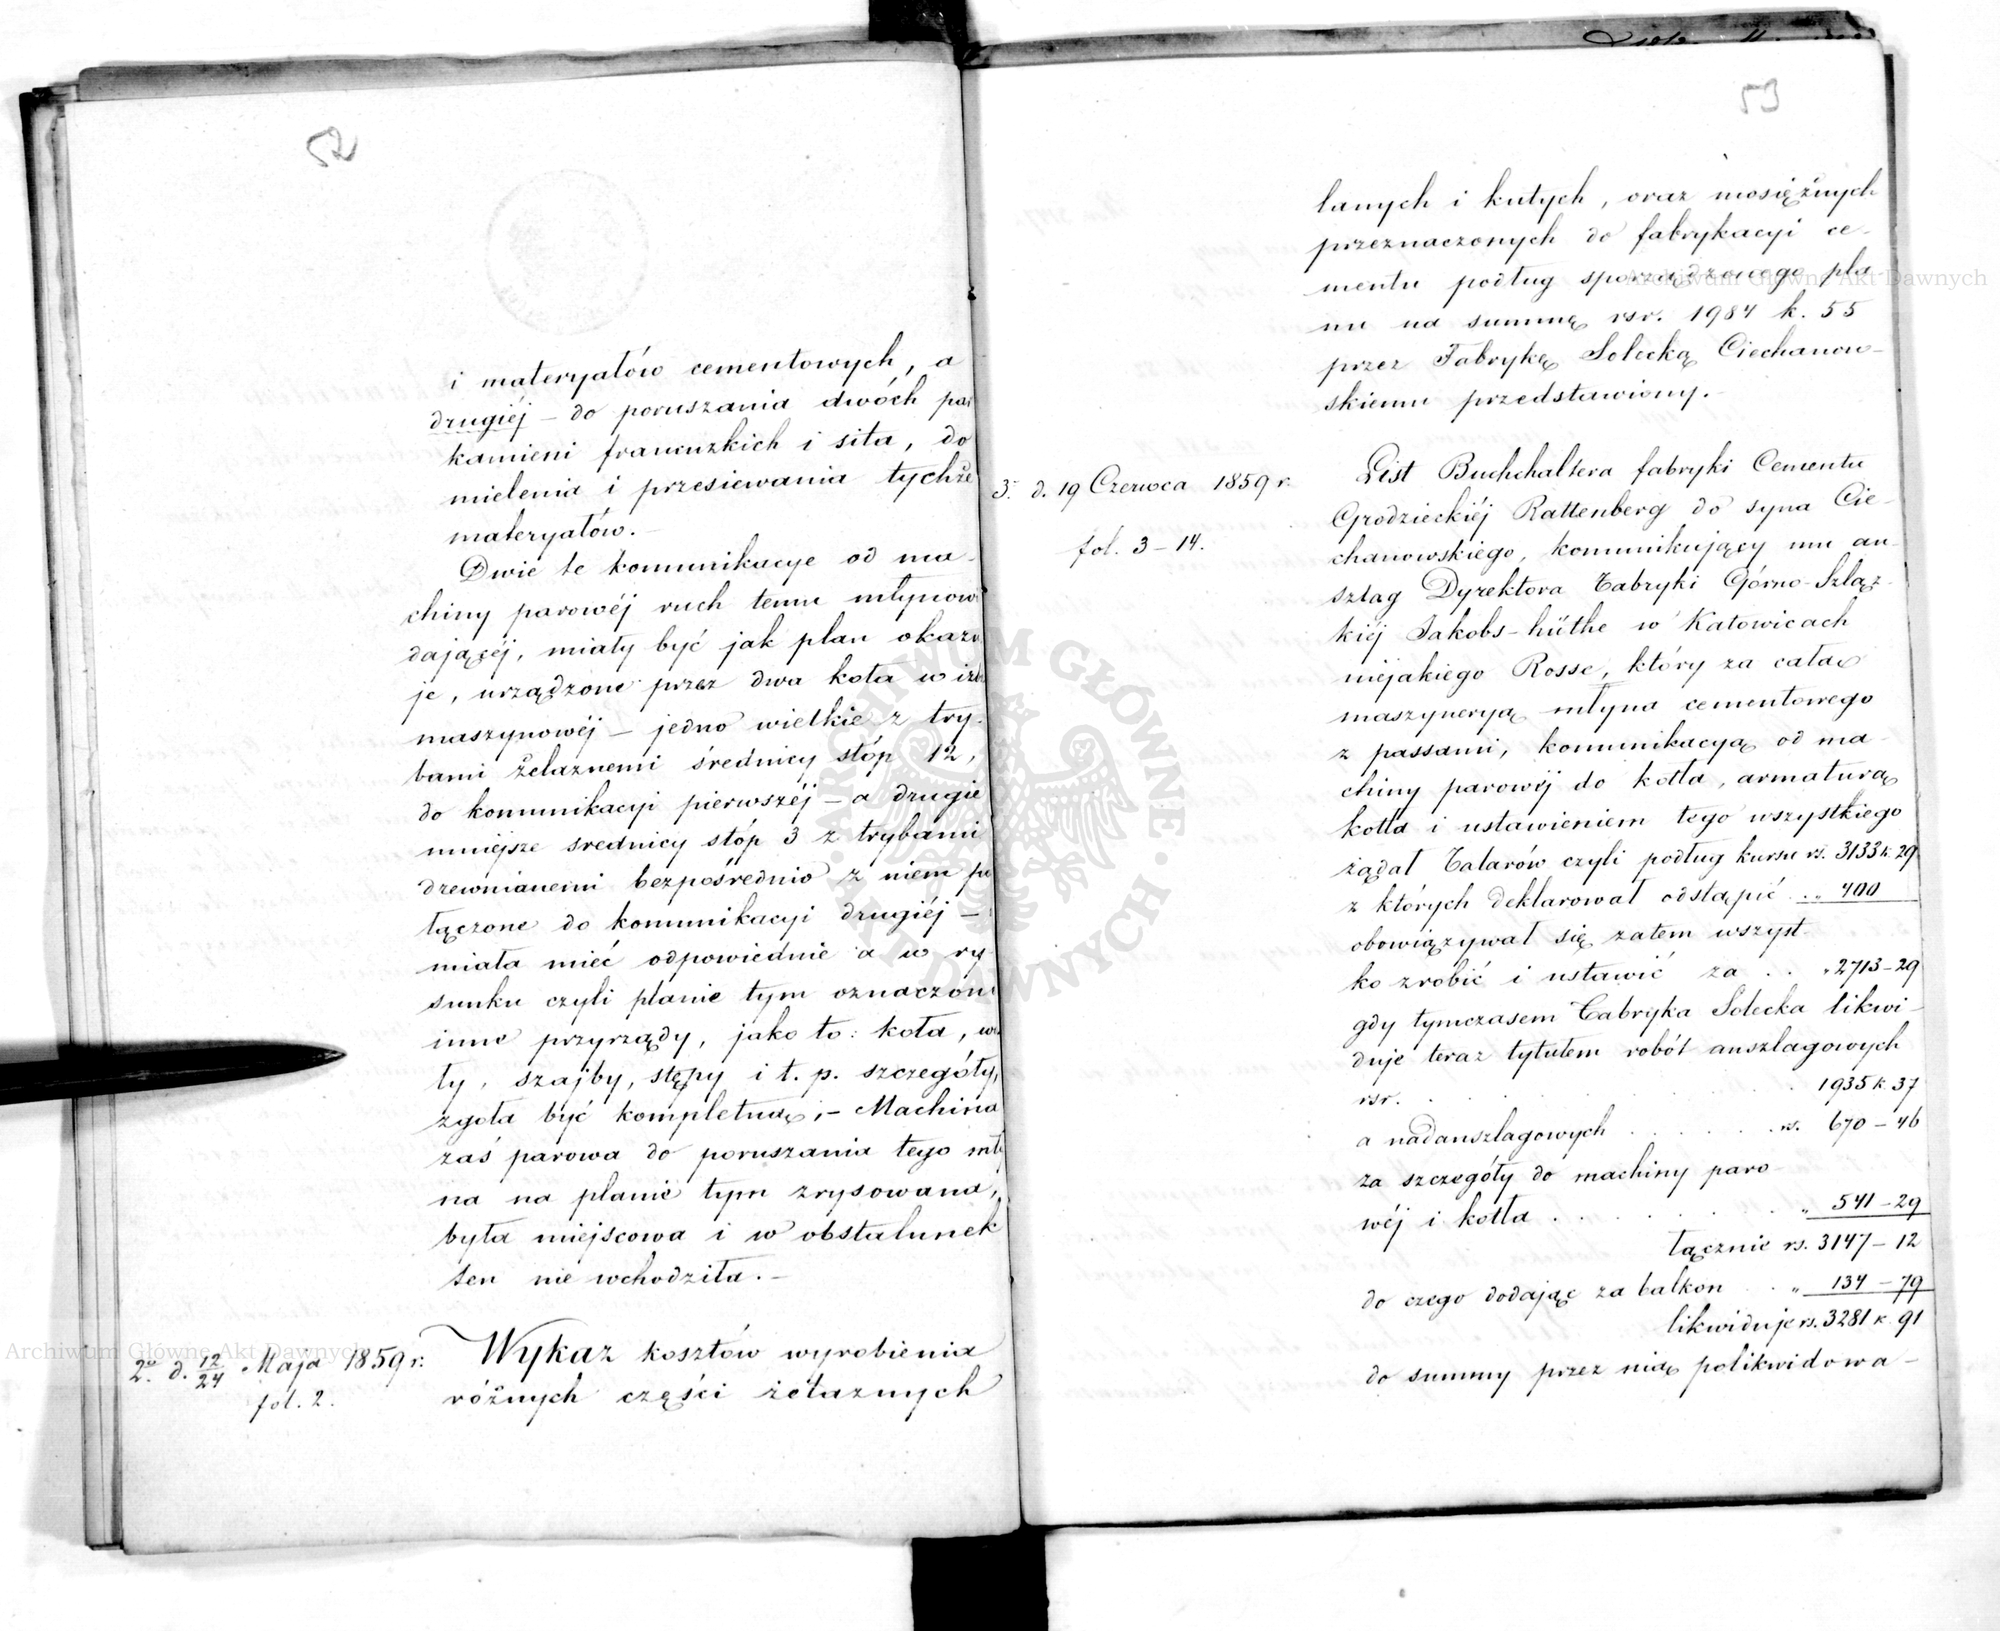 52
i materyałów cementowych, a
drugiéj – do poruszania dwóch par
kamieni francuzkich i sita, do
mielenia i przesiewania tychże
materyałów. –
Dwie te komunikacye od ma-
chiny parowéj ruch temu młynowi
dającéj, miały być jak plan okazu
je, urządzone przez dwa koła w izb
maszynowéj – jedno wielkie z try-
bami żelaznemi średnicy stóp 12,
do komunikacyi pierwszéj – a drugie
mniejsze średnicy stóp 3 z trybami
drewnianemi bezpośrednio z niem po
łączone do komunikacyi drugiéj –
miała mieć odpowiednie a w ry-
sunku czyli planie tym oznaczone
inne przyrządy, jako to: koła, wa
ły, szajby, stępy i t. p. szczegóły,
zgoła być kompletną; – Machina
zaś parowa do poruszania tego mły
na na planie tym zrysowana,
była miejscowa i w obstalunek
ten nie wchodziła. –
2o d. 12/24 Maja 1859 r.
fol. 2.
Wykaz kosztów wyrobienia
różnych części żelaznych
53
lanych i kutych, oraz mosiężnych
przeznaczonych do fabrykacyi ce-
mentu podług sporządzonego pla
nu na summę rsr. 1984 k. 55
przez Fabrykę Solecką Ciechanow-
skiemu przedstawiony. –
3. d. 19 Czerwca 1859 r.
fol. 3 – 14.
List Buchhaltera fabryki Cementu
Grodzieckiéj Rattenberg do syna Cie-
chanowskiego, komunikujący mu an-
szlag Dyrektora Fabryki Górno-Szląz-
kiéj Jakobs-hüthe w Katowicach
niejakiego Rosse, który za całą
maszyneryą młyna cementowego
z passami, komunikacyą od ma-
chiny parowéj do kotła, armaturą
kotła i ustawieniem tego wszystkiego
żądał Talarów czyli podług kursu rs. 3133 k. 29
z których deklarował odstąpić . „ 400
obowiązywał się zatem wszyst-
ko zrobić i ustawić za . . „ 2713 – 29
gdy tymczasem Fabryka Solecka likwi-
duje teraz tytułem robót anszlagowych
rsr. . . . . . . . 1935 k. 37
a nadanszlagowych . . . . . rs. 670 – 46
za szczegóły do machiny paro-
wéj i kotła . . . . . . „ 541 – 29
łącznie rs. 3147 – 12
do czego dodając za balkon . . „ 134 – 79
likwiduje rs. 3281 k. 91
do summy przez nią polikwidowa-
Archiwum Główne Akt Dawnych
Archiwum Główne Akt Dawnych
ARCHIWUM GŁÓWNE
AKT DAWNYCH